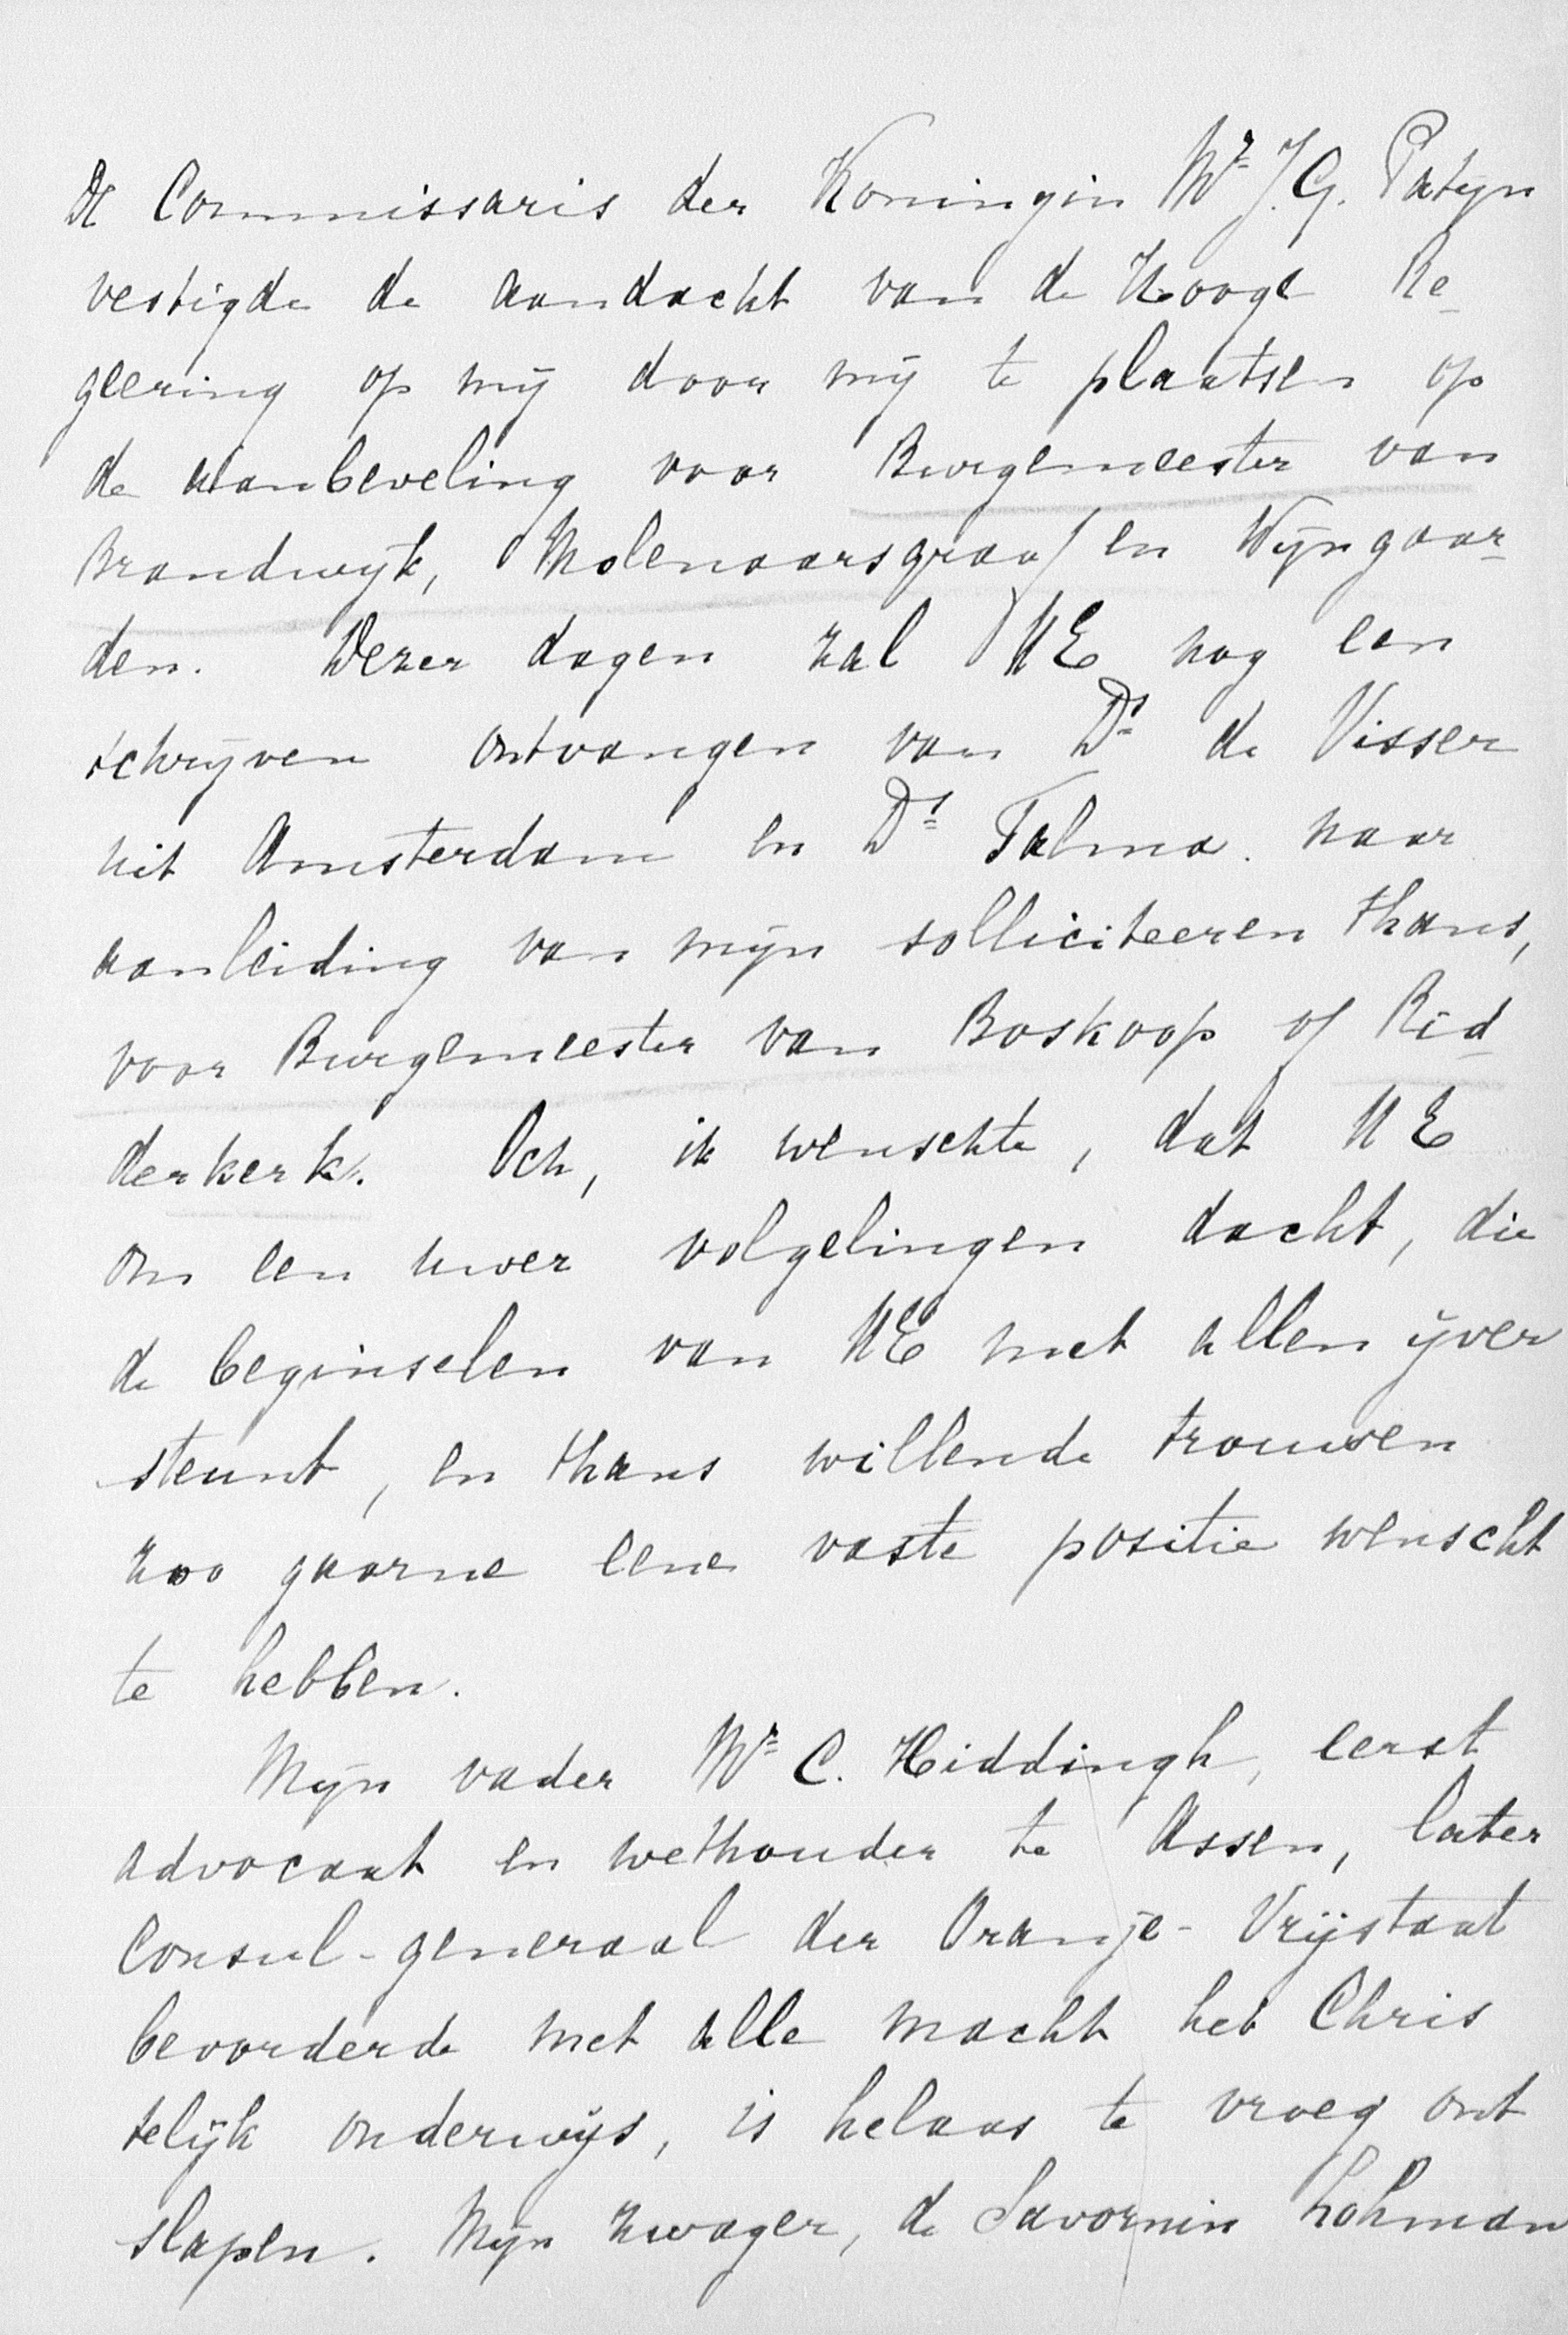 De Commissaris der Koningin Mr J.G. Patijn
vestigde de aandacht van de Hooge Re-
geering op mij door mij te plaatsen op
de aanbeveling voor Burgemeester van
Brandwijk, Molenaarsgraaf en Wijngaar-
den. Dezer dagen zal UE nog een
schrijven ontvangen van Ds de Visser
uit Amsterdam en Ds Talma. naar
aanleiding van mijn solliciteeren thans,
voor Burgemeester van Boskoop of Rid-
derkerk. Och, ik wenschte, dat UE
om een uwer volgelingen dacht, die
de beginselen van UE met allen ijver
steunt, en thans willende trouwen
zoo gaarne eene vaste positie wenscht
te hebben.
Mijn vader Mr C. Hiddingh, eerst
advocaat en wethouder te Assen, later
Consul-generaal der Oranje-Vrijstaat
bevorderde met alle macht het Chris
telijk onderwijs, is helaas te vroeg ont
slapen. Mijn zwager, de Savornin Lohman